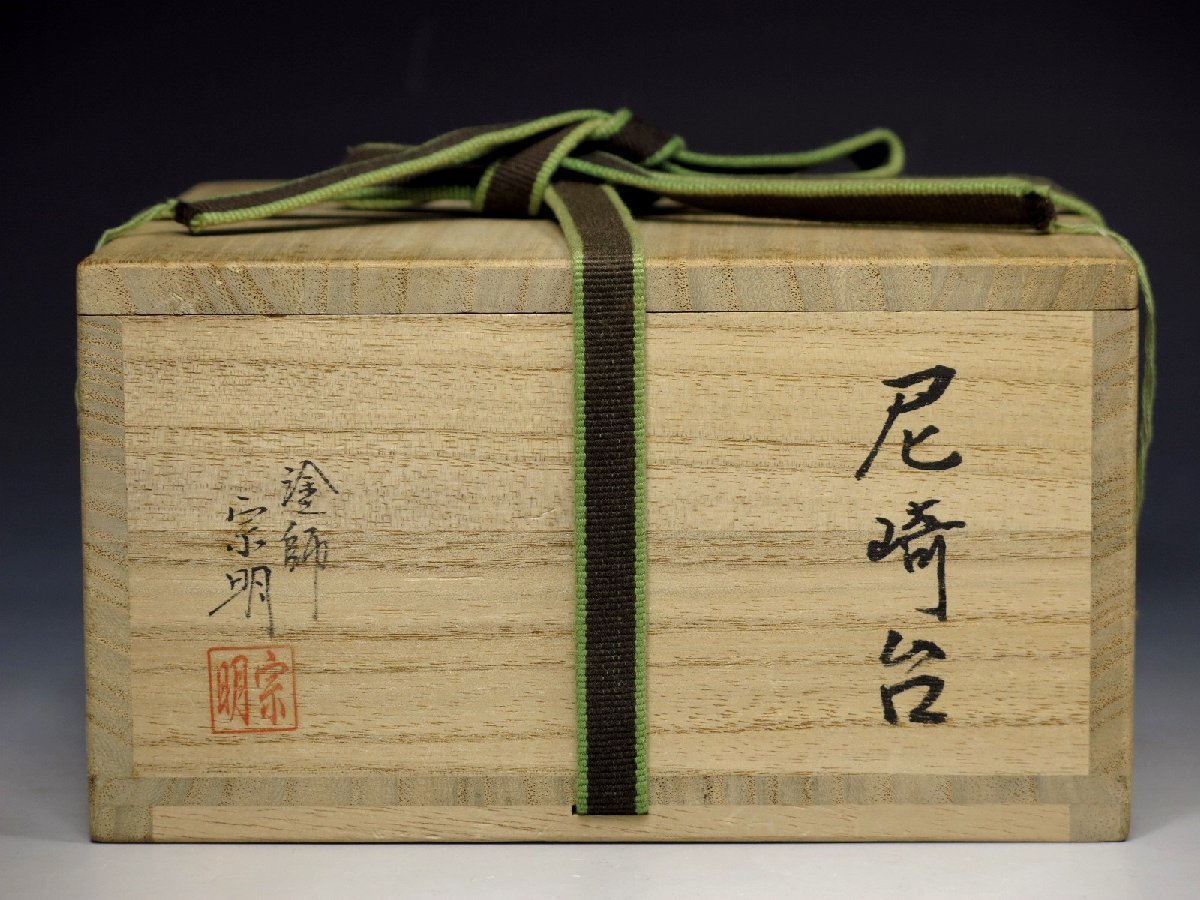 尼崎台
塗師
宗明
宗明